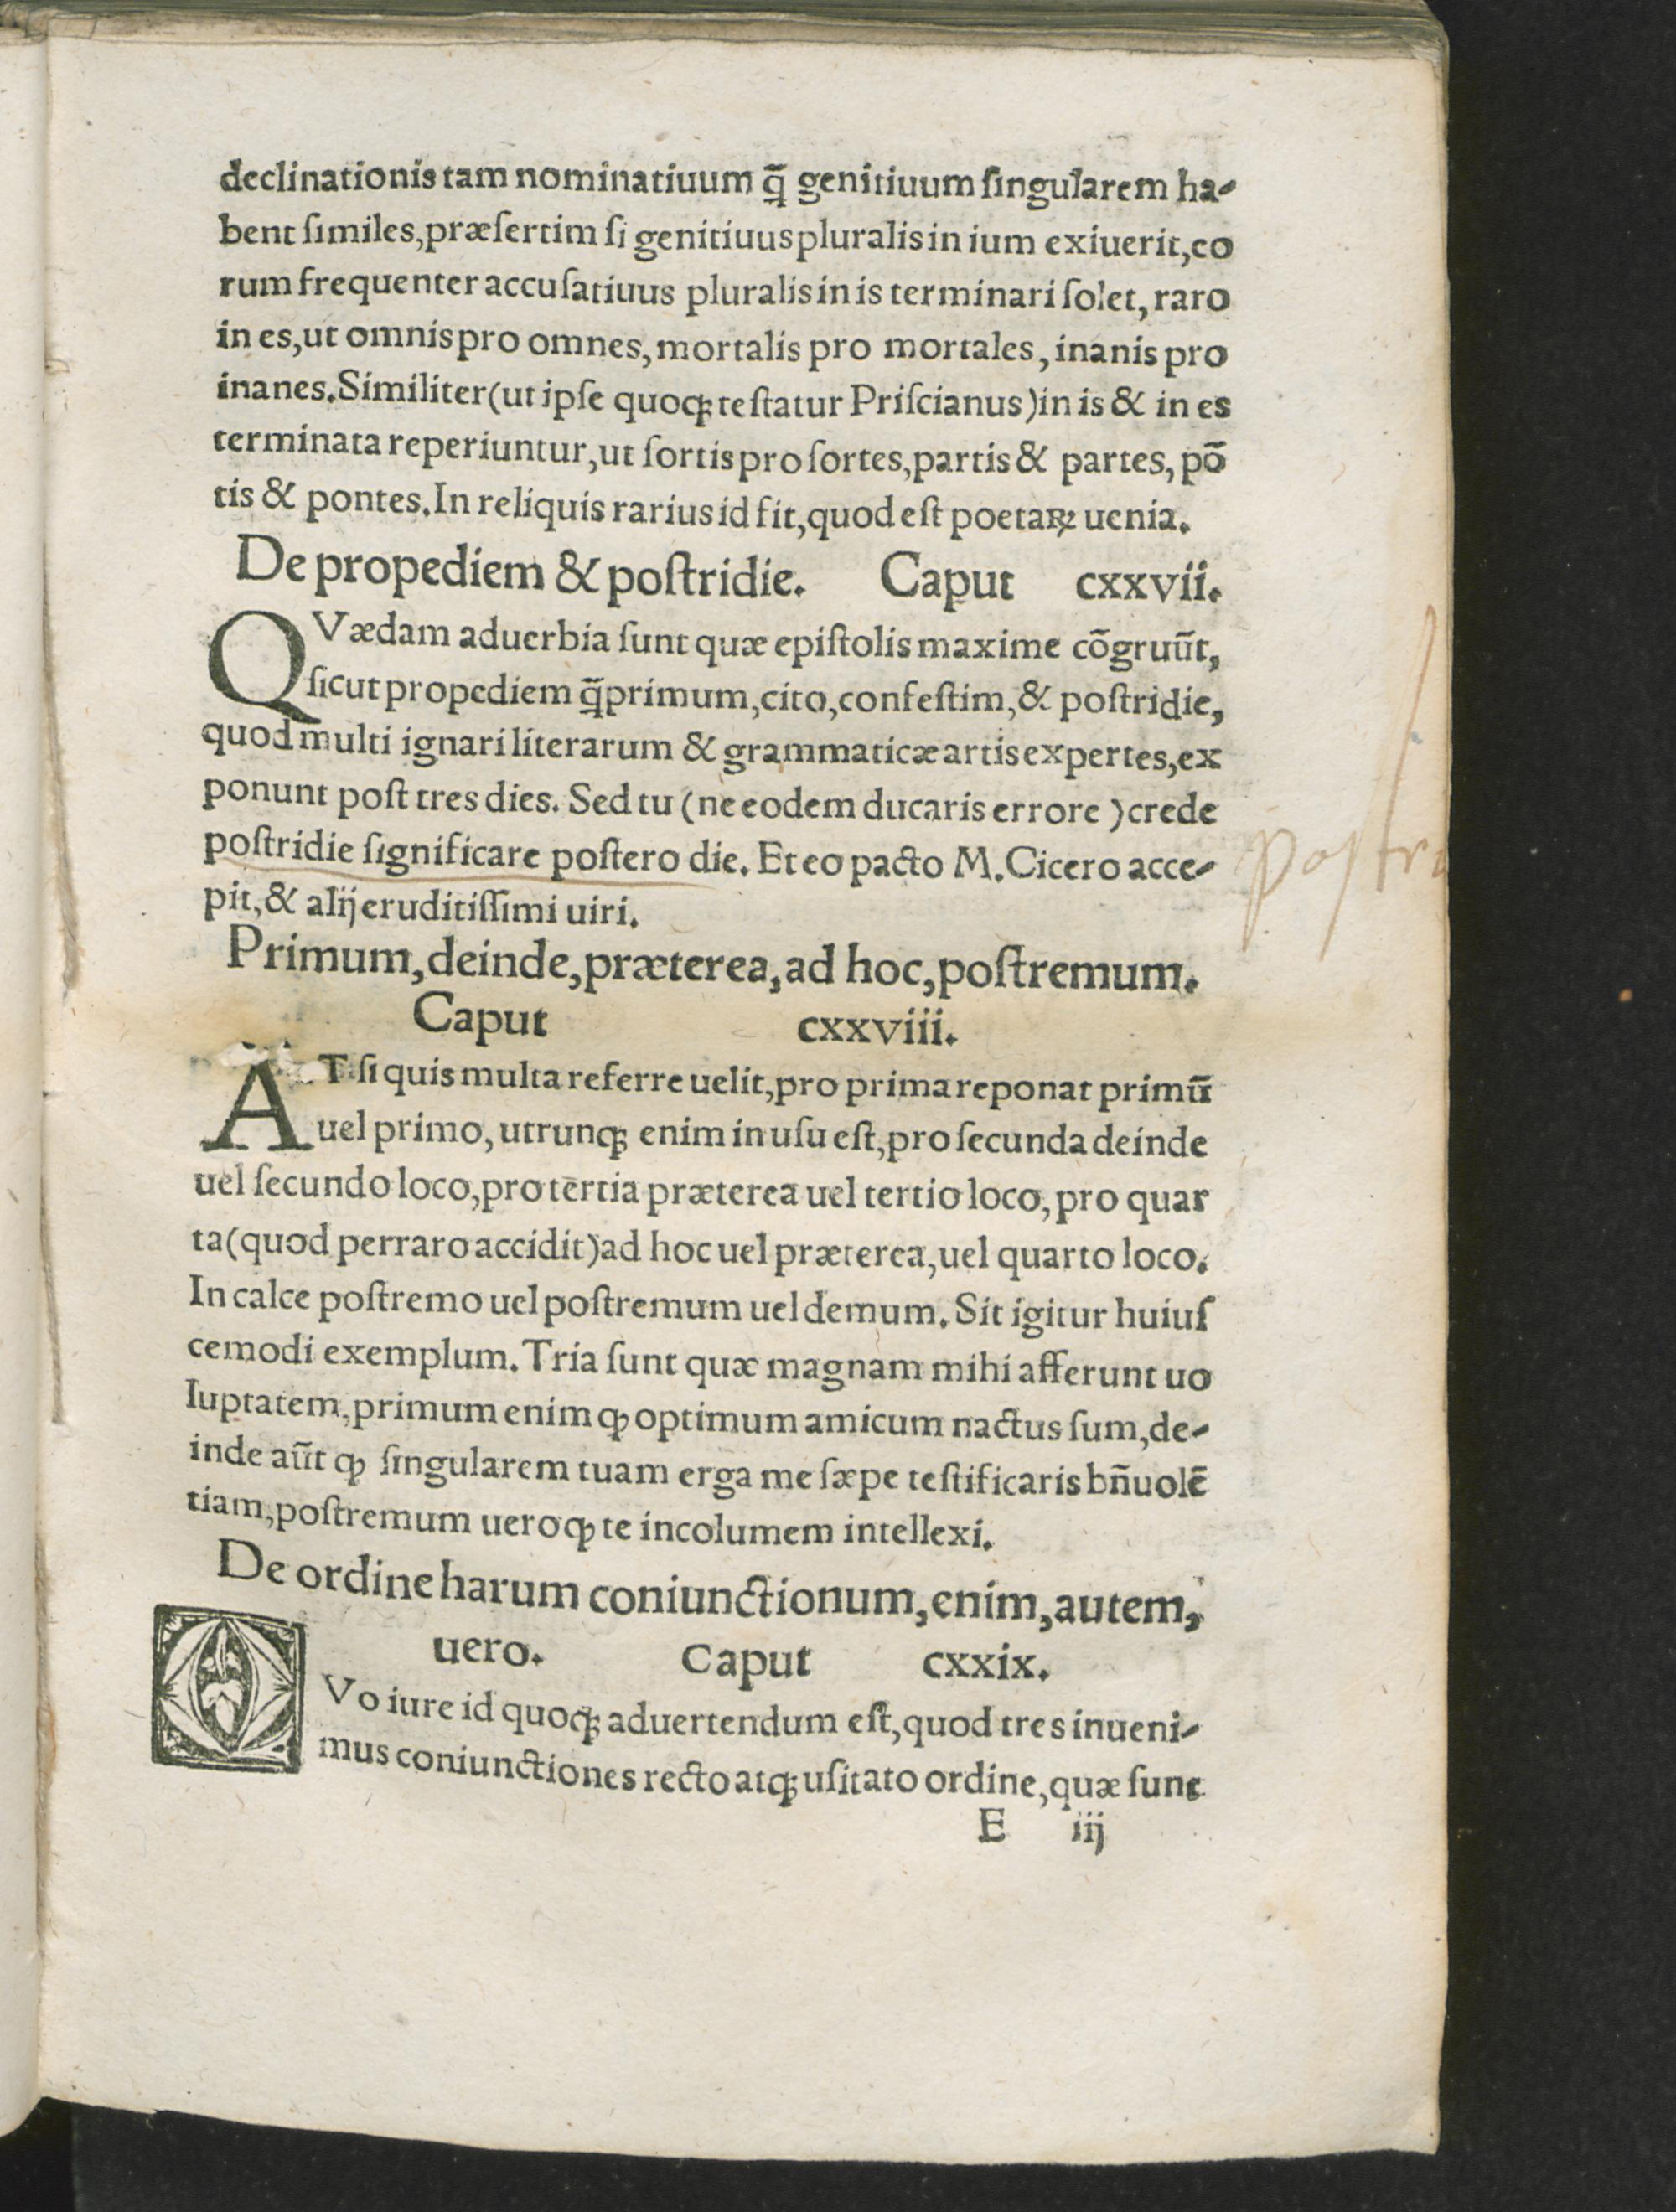 declinationis tam nominatiuum q̄ genitiuum ſingularem ha-
bent ſimiles, præſertim ſi genitiuus pluralis in ium exiuerit, eo
rum frequenter accuſatiuus pluralis in is terminari ſolet, raro
in es, ut omnis pro omnes, mortalis pro mortales, inanis pro
inanes. Similiter (ut ipſe quoq; teſtatur Priſcianus) in is & in es
terminata reperiuntur, ut ſortis pro ſortes, partis & partes, pō
tis & pontes. In reliquis rarius id fit, quod eſt poetaꝝ uenia.
De propediem & poſtridie. Caput cxxvii.
QVædam aduerbia ſunt quæ epiſtolis maxime cōgruūt,
ſicut propediem q̄primum, cito, confeſtim, & poſtridie,
quod multi ignari literarum & grammaticæ artis expertes, ex
ponunt poſt tres dies. Sed tu (ne eodem ducaris errore) crede
poſtridie ſignificare poſtero die. Et eo pacto M. Cicero acce-
pit, & alij eruditiſſimi uiri.
Primum, deinde, præterea, ad hoc, poſtremum.
Caput cxxviii.
AT ſi quis multa referre uelit, pro prima reponat primū
uel primo, utrunq; enim in uſu eſt, pro ſecunda deinde
uel ſecundo loco, pro tertia præterea uel tertio loco, pro quar
ta (quod perraro accidit) ad hoc uel præterea, uel quarto loco.
In calce poſtremo uel poſtremum uel demum. Sit igitur huiuſ
cemodi exemplum. Tria ſunt quæ magnam mihi afferunt uo
luptatem, primum enim ꝙ optimum amicum nactus ſum, de-
inde aūt ꝙ ſingularem tuam erga me ſæpe teſtificaris bñuolē
tiam, poſtremum uero ꝙ te incolumem intellexi.
De ordine harum coniunctionum, enim, autem,
uero. Caput cxxix.
QVo iure id quoq; aduertendum eſt, quod tres inueni-
mus coniunctiones recto atq; uſitato ordine, quæ ſunt
E iij
poſtr